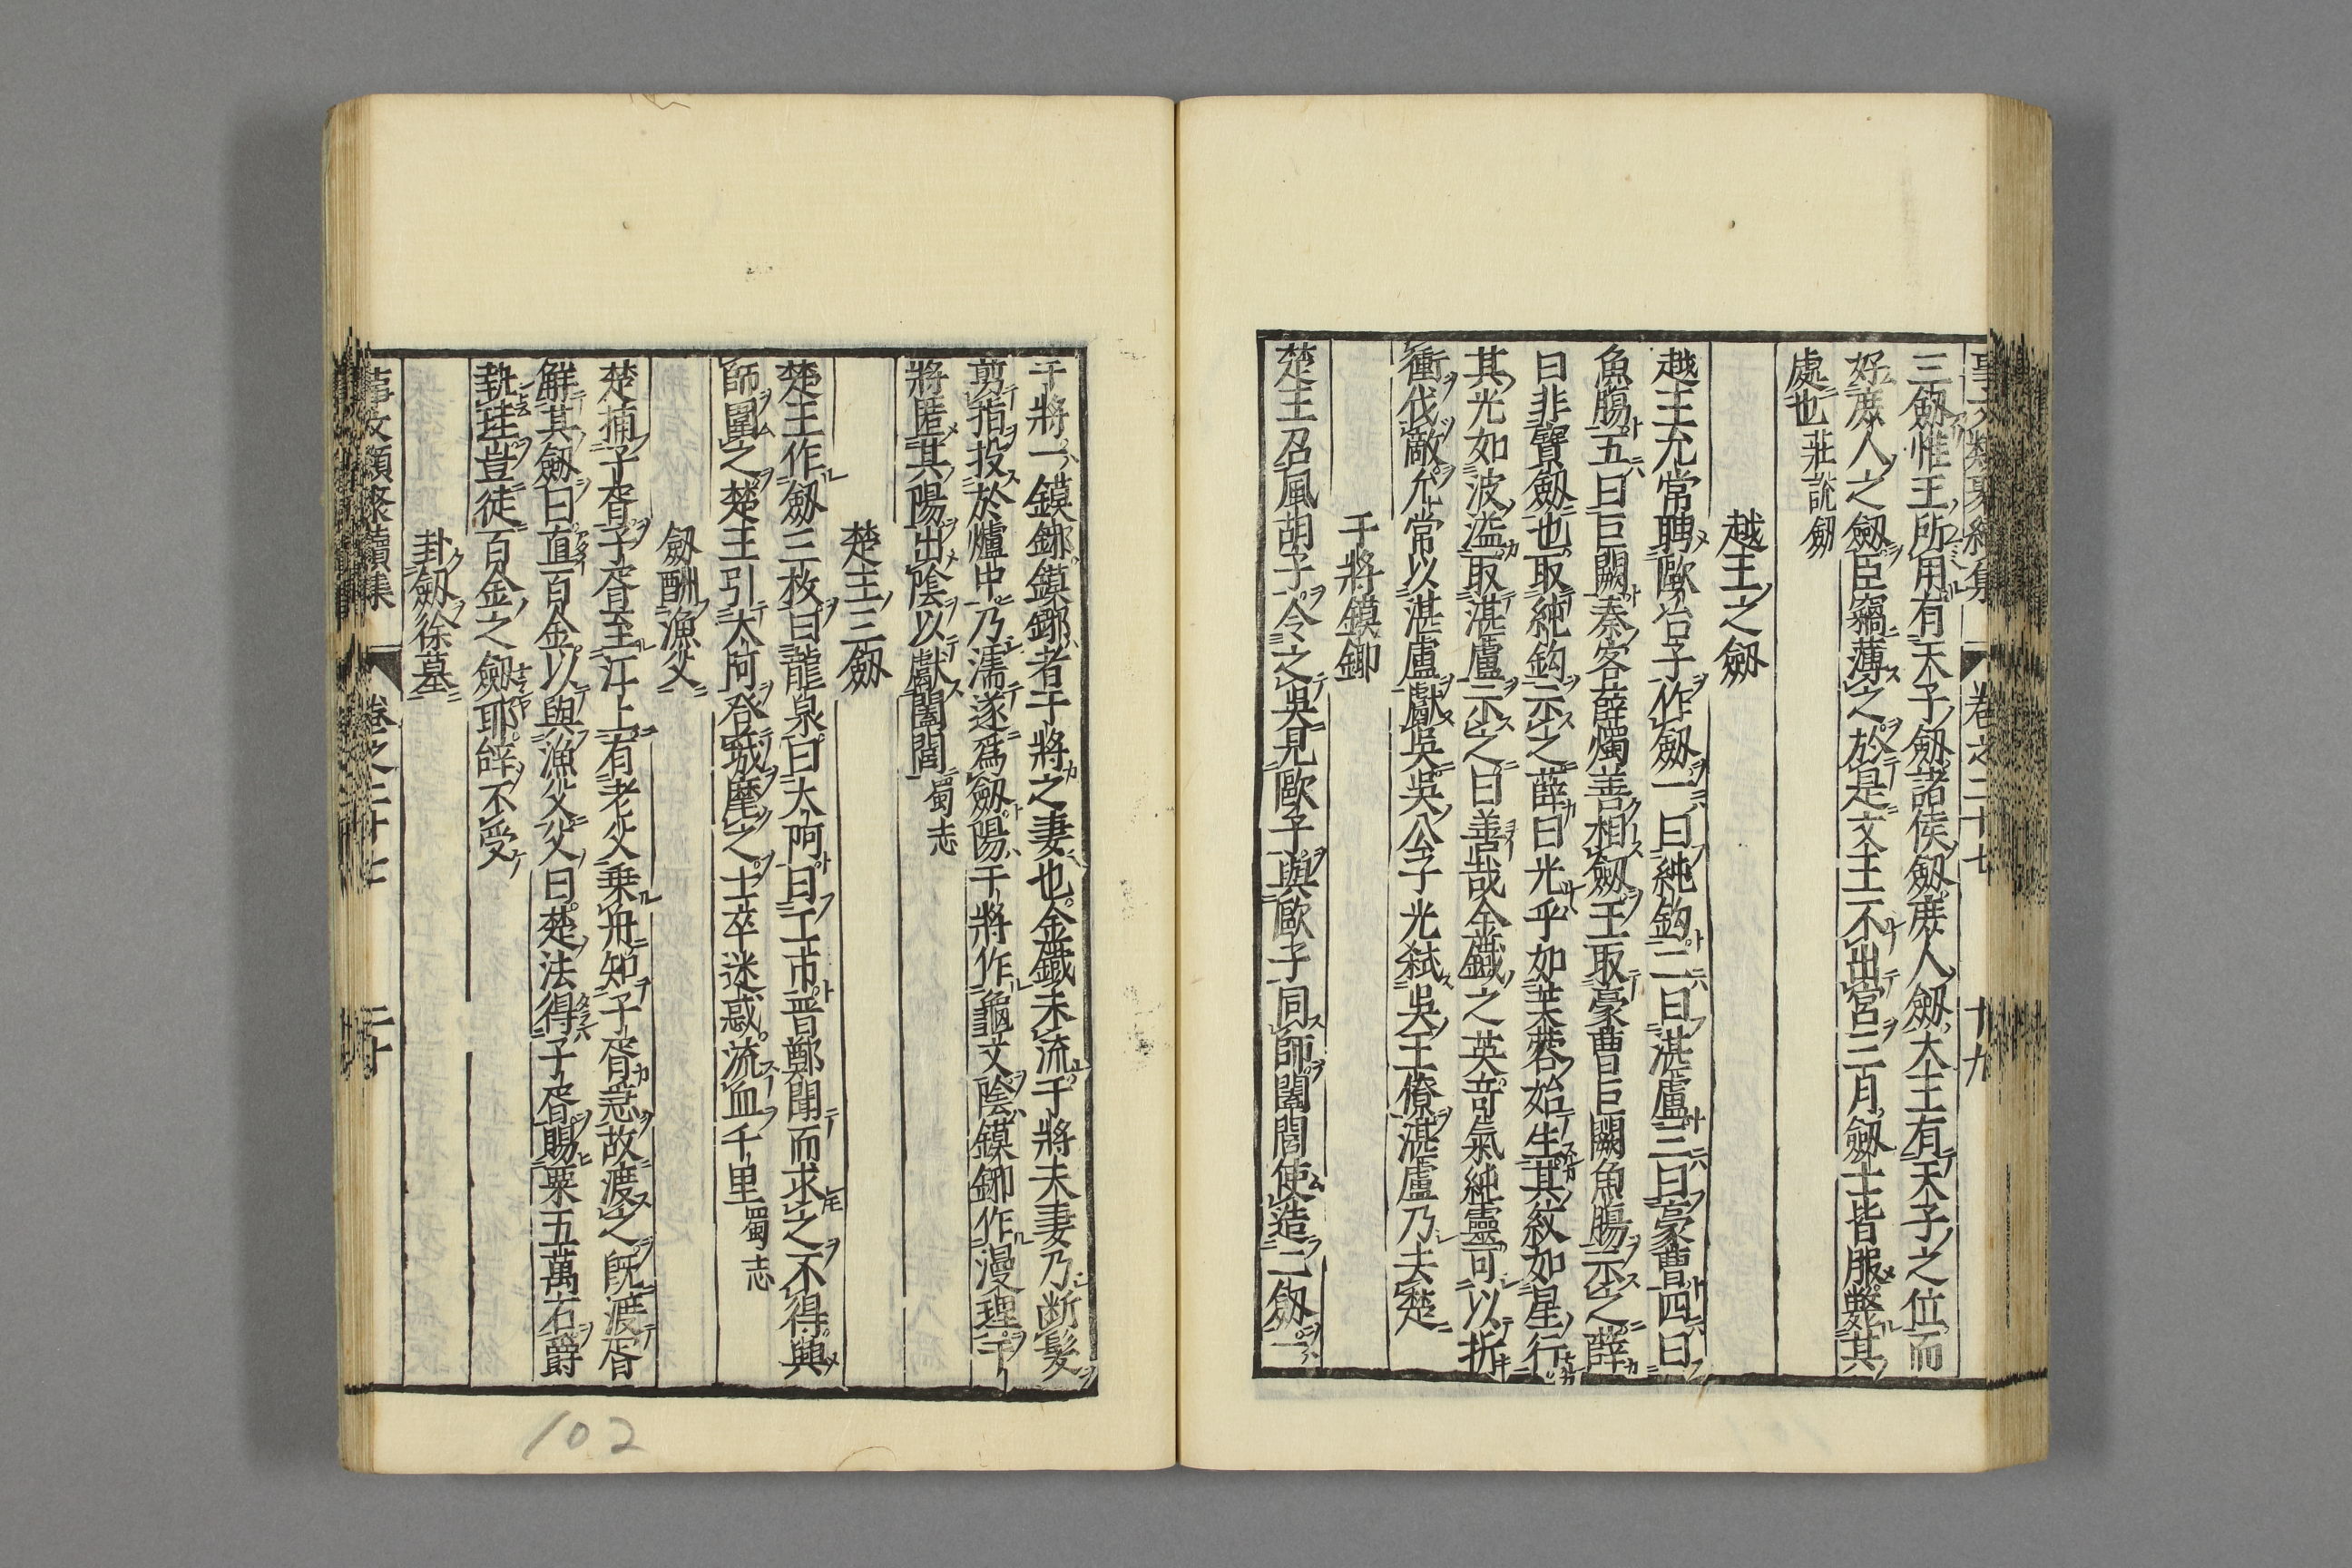 三劔惟王所用有天子劔諸侯劔庶人劔大王有天子之位而
好庶人之劔臣竊薄之於是文王不出宮三月劔士皆服斃其
處也 莊說劔
越王之劔
越王允常聘歐冶子作劔一曰純鈎二曰湛盧三曰豪曹四曰
魚腸五曰巨闕秦客薛燭善相劔王取豪曹巨闕魚腸示之薛
曰非寶劔也取純鈎示之薛曰光乎如芙蓉始生其紋如星行
其光如波溢取湛盧示之曰善哉金鐵之英奇氣純靈可以折
衝伐敵允常以湛盧獻吳吳公子光弑吳王僚湛盧乃去楚
干將鏌鎁
楚王召風胡子令之吳見歐子與歐子同師闔閭使造二劔一
干將一鏌鎁鏌鎁者干將之妻也金鐵未流干將夫妻乃断髮
剪指投於爐中乃濡遂爲劔陽干將作龜文陰鏌鎁作漫理干
將匿其陽出陰以獻闔閭 蜀志
楚王三劔
楚王作劔三枚曰龍泉曰太阿曰工市晋鄭聞而求之不得興
師圍之楚王引太阿登城麾之士卒迷惑流血千里 蜀志
劔酬漁父
楚捕子胥子胥至江上有老父乗舟知子胥急故渡之既渡胥
解其劔曰直百金以與漁父父曰楚法得子胥賜粟五萬石爵
執珪豈徒百金之劔耶辞不受
卦劔徐墓
事文類聚續集 卷之二十七 二十